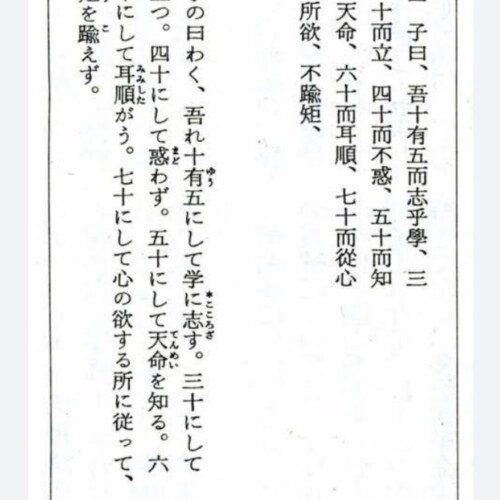 子曰、吾十有五而志乎學、三
十而立、四十而不惑、五十而知
天命、六十而耳順、七十而從心
所欲、不踰矩、
の曰わく、吾れ十有五にして学に志す。三十にして
つ。四十にして惑わず。五十にして天命を知る。六
にして耳順がう。七十にして心の欲する所に従って、
を踰えず。